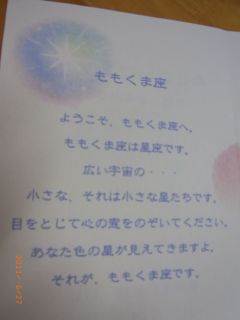 ももくま座
ようこそ、ももくま座へ。
ももくま座は星座です。
広い宇宙の・・・
小さな、それは小さな星たちです。
目をとじて心の窓をのぞいてください。
あなた色の星が見えてきますよ。
それが、ももくま座です。
2011/ 6/27